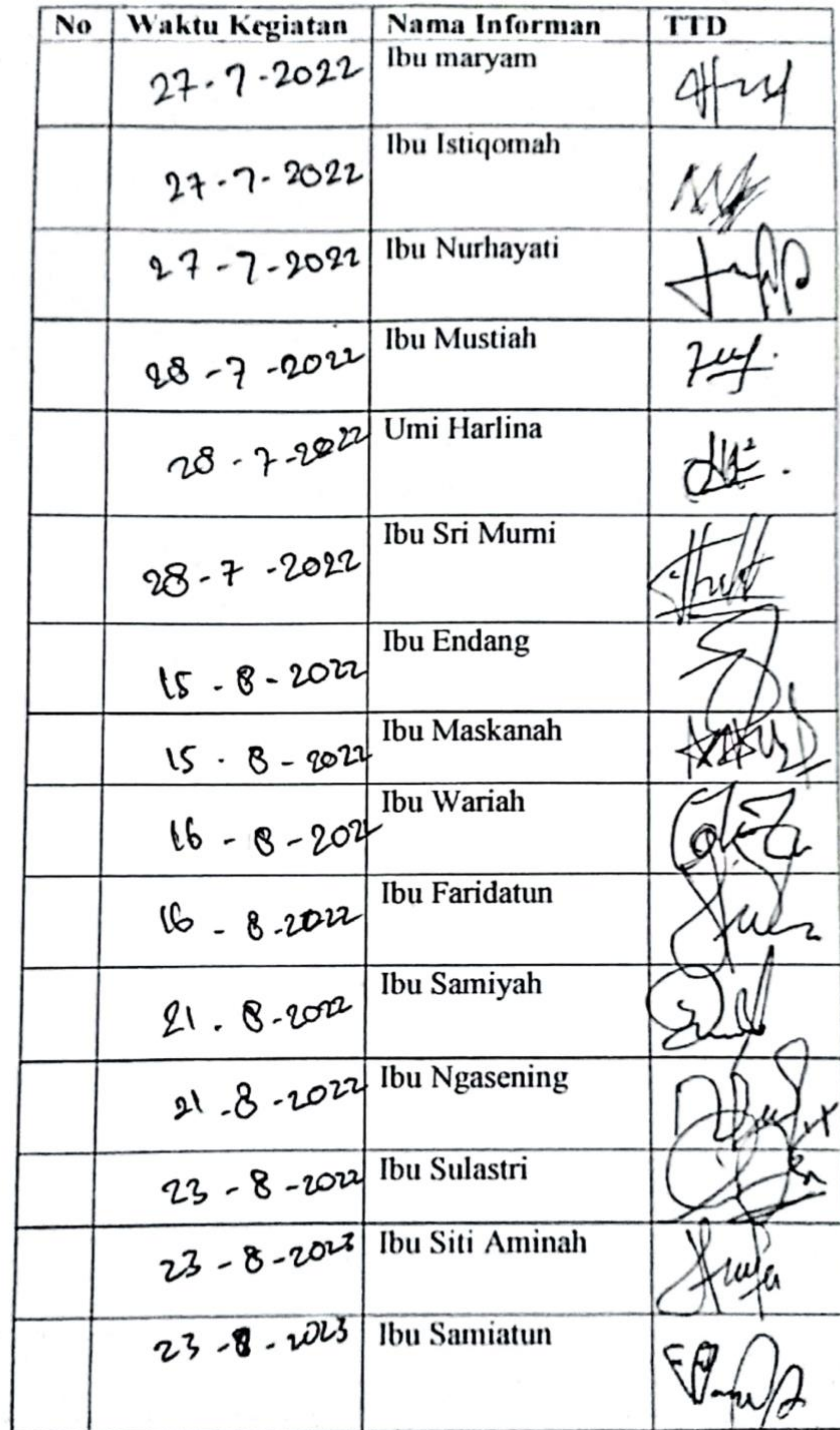 No Waktu Kegiatan Nama Informan TTD
27-7-2022 Ibu maryam
27-7-2022 Ibu Istiqomah
27-7-2022 Ibu Nurhayati
28-7-2022 Ibu Mustiah
28-7-2022 Umi Harlina
28-7-2022 Ibu Sri Murni
15-8-2022 Ibu Endang
15-8-2022 Ibu Maskanah
16-8-2022 Ibu Wariah
16-8-2022 Ibu Faridatun
21-8-2022 Ibu Samiyah
21-8-2022 Ibu Ngasening
23-8-2022 Ibu Sulastri
23-8-2023 Ibu Siti Aminah
23-8-2023 Ibu Samiatun